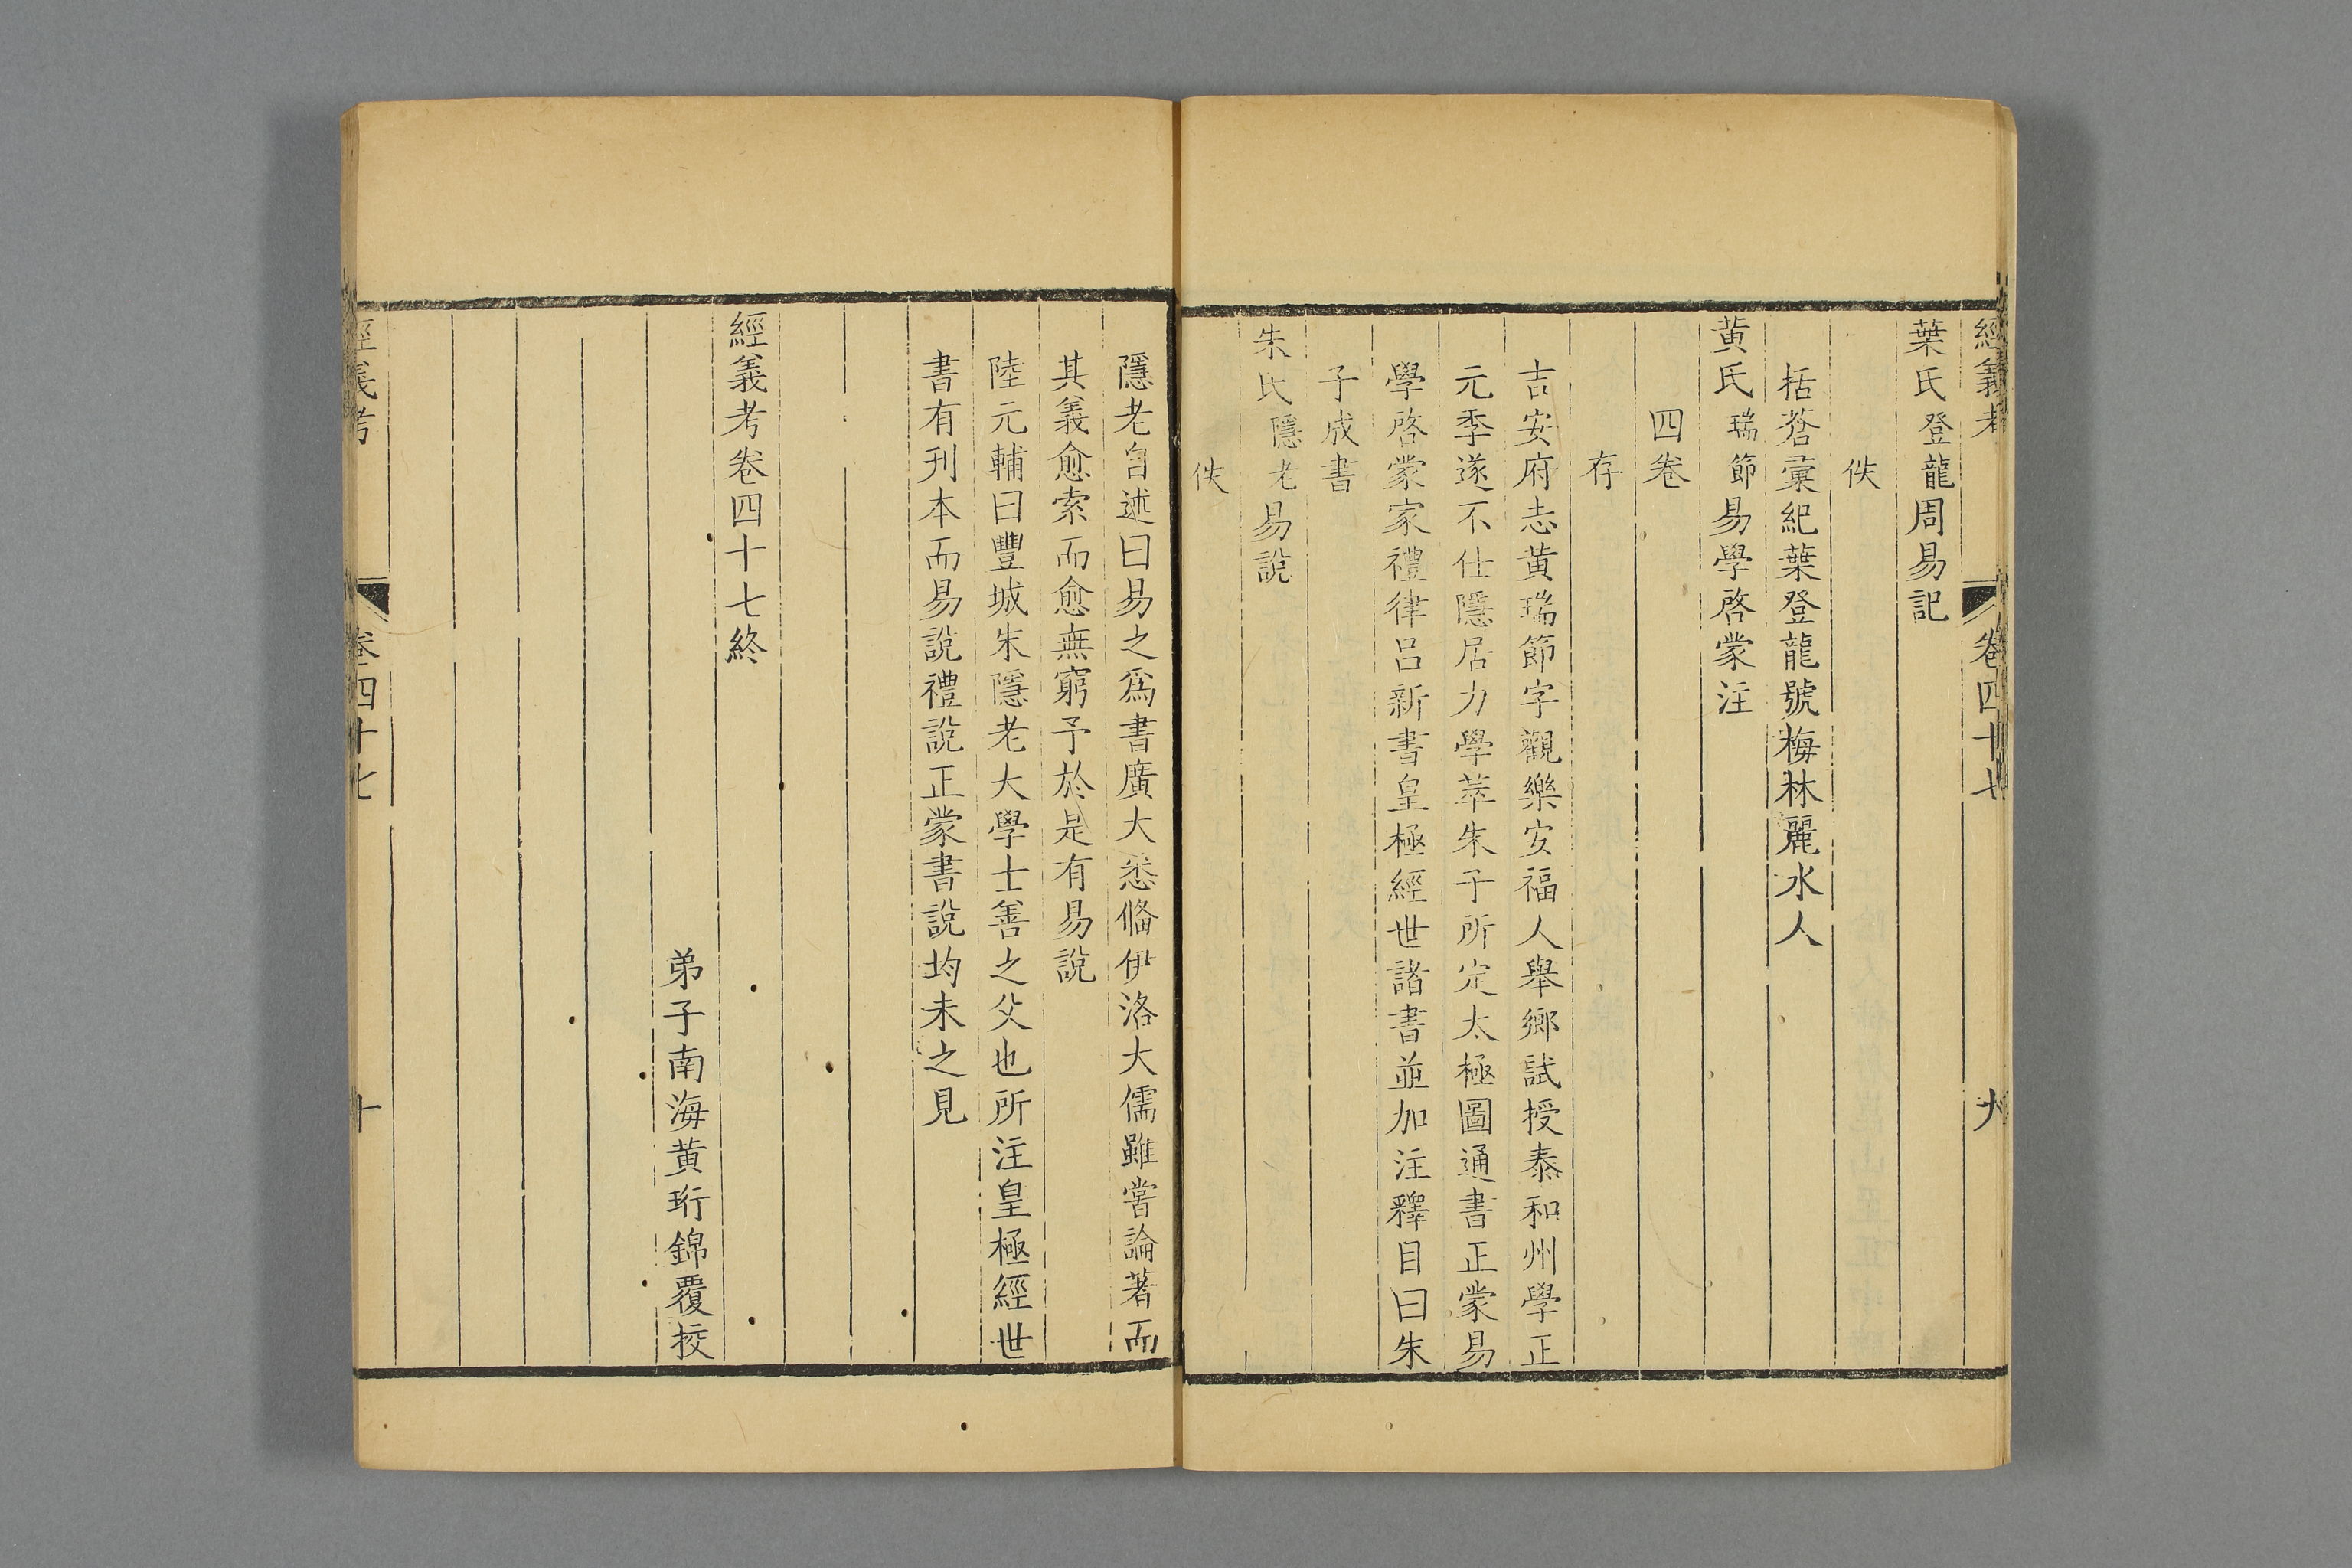 經義考 卷四十七 九
葉氏登龍周易記
佚
括蒼彙紀葉登龍號梅林麗水人
黃氏瑞節易學啓蒙注
四卷
存
吉安府志黃瑞節字觀樂安福人舉鄉試授泰和州學正
元季遂不仕隱居力學萃朱子所定太極圖通書正蒙易
學啓蒙家禮律呂新書皇極經世諸書並加注釋目曰朱
子成書
朱氏隱老易說
佚
隱老自述曰易之爲書廣大悉備伊洛大儒雖嘗論著而
其義愈索而愈無窮予於是有易說
陸元輔曰豐城朱隱老大學士善之父也所注皇極經世
書有刋本而易說禮說正蒙書說均未之見
經義考卷四十七終
弟子南海黃珩錦覆挍
經義考 卷四十七 十